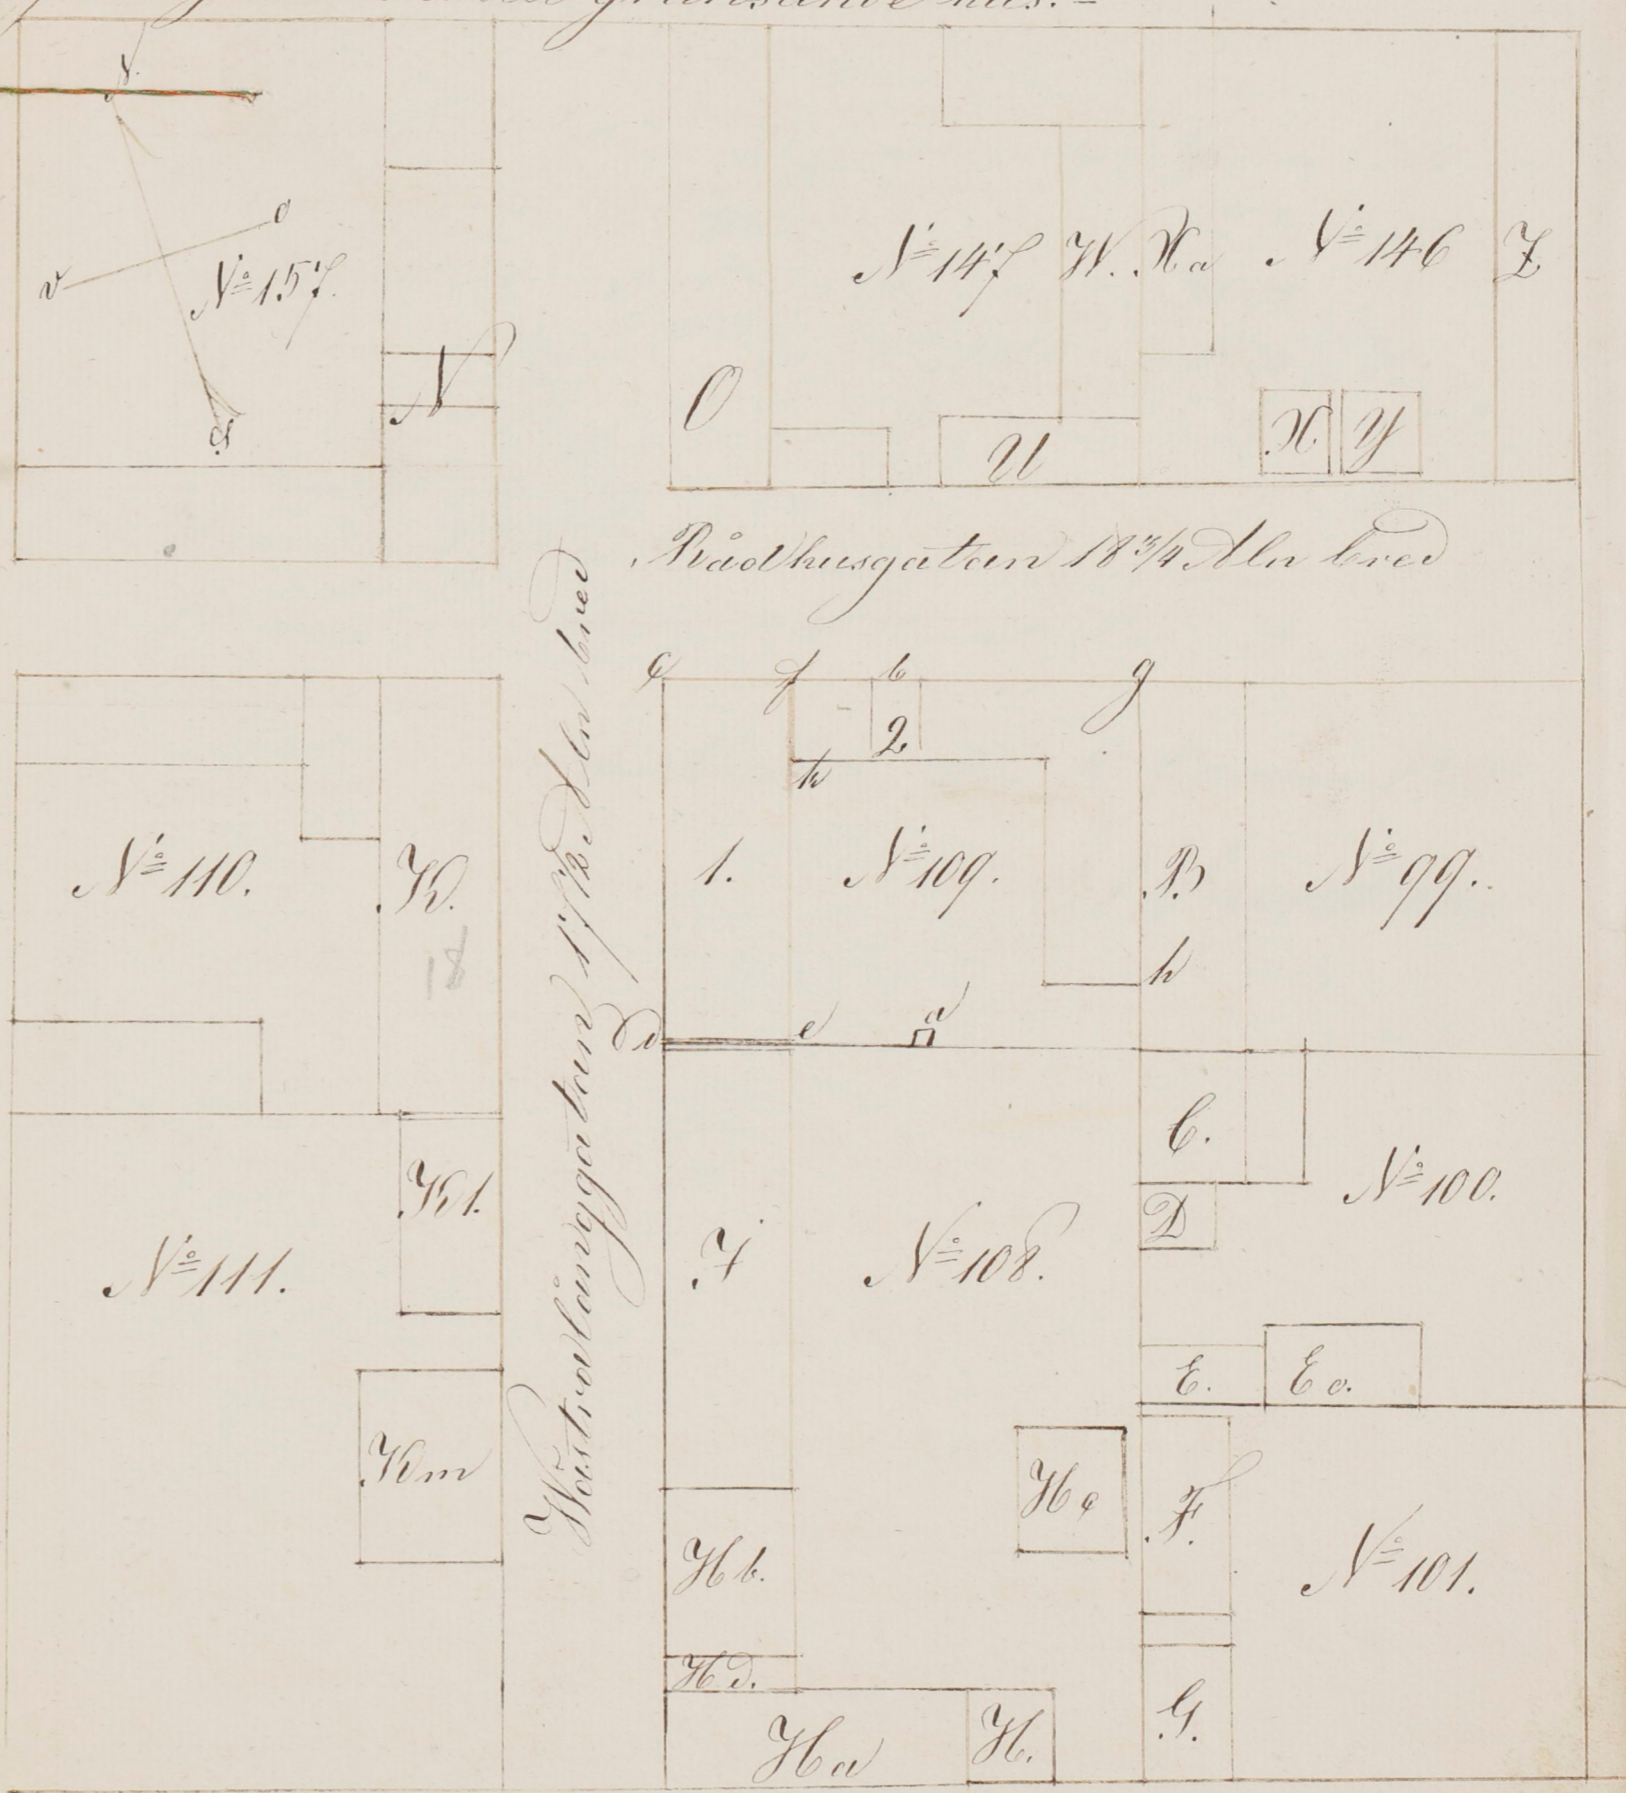 gränsande hus.
N
o
v
S
N:o 157.
N
O
N:o 147
W.
Xa
N:o 146
Z
U
X
Y
Rådhusgatan 18 3/4 Aln bred
Wästra långgatan 17 1/2 Aln bred
c
f
b
g
2
k
N:o 110.
K.
1.
N:o 109.
B
N:o 99.
h
d
e
a
K1.
C.
N:o 100.
D
N:o 111.
J
N:o 108.
E.
Ea.
Km
Hc
F.
Hb.
N:o 101.
Hd.
G.
Ha
H.